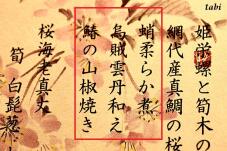 tabi
姫栄螺と筍木の
網代産真鯛の桜
蛸柔らか煮
烏賊雲丹和え
鰆の山椒焼き
桜海老真丈
筍 白髭葱